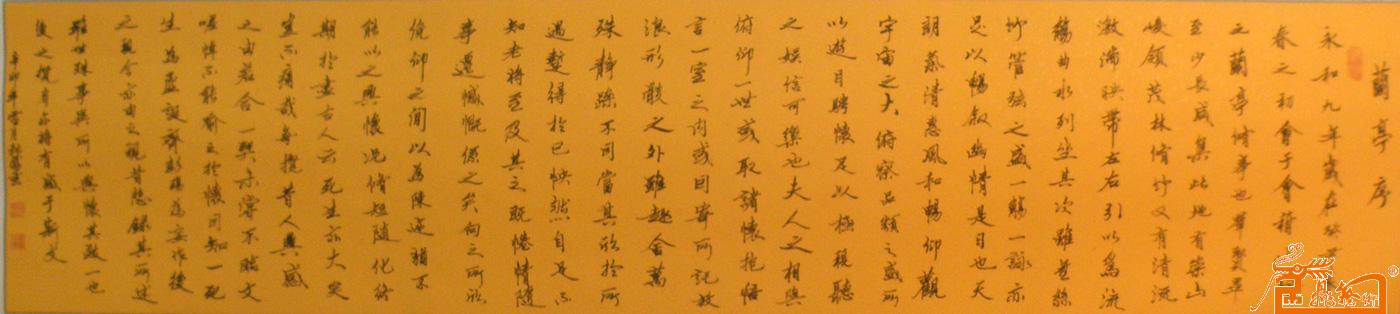 蘭亭序
永和九年歲在癸
春之初會于會稽
之蘭亭脩事也羣賢畢
至少長咸集此地有崇山
峻領茂林脩竹又有清流
激湍映帶左右引以為流
觴曲水列坐其次雖無絲
竹管弦之盛一觴一詠亦
足以暢敘幽情是日也天
朗氣清惠風和暢仰觀
宇宙之大俯察品類之盛所
以遊目騁懷足以極視聽
之娛信可樂也夫人之相與
俯仰一世或取諸懷抱悟
言一室之內或因寄所託放
浪形骸之外雖趣舍萬
殊靜躁不同當其欣於所
遇蹔得於己怏然自足不
知老將至及其之既惓情隨
事遷感慨係之矣向之所欣
俛仰之間以為陳迹猶不
能以之興懷況脩短隨化終
期於盡古人云死生亦大矣
豈不痛哉每攬昔人興感
之由若合一契未嘗不臨文
嗟悼不能喻之於懷固知一死
生為虛誕齊彭殤為妄作後
之視今亦由之視昔悲錄其所述
雖世殊事異所以興懷其致一也
後之攬者亦將有感于斯文
辛卯年雪月